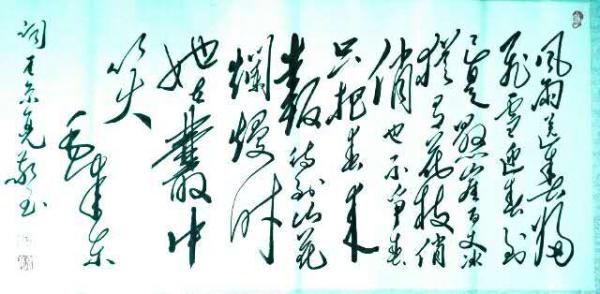 风雨送春归
飞雪迎春到
已是懸崖百丈冰
犹有花枝俏
俏也不争春
只把春来
報待到山花
爛熳时
她在叢中
笑
毛泽东
词 敬书